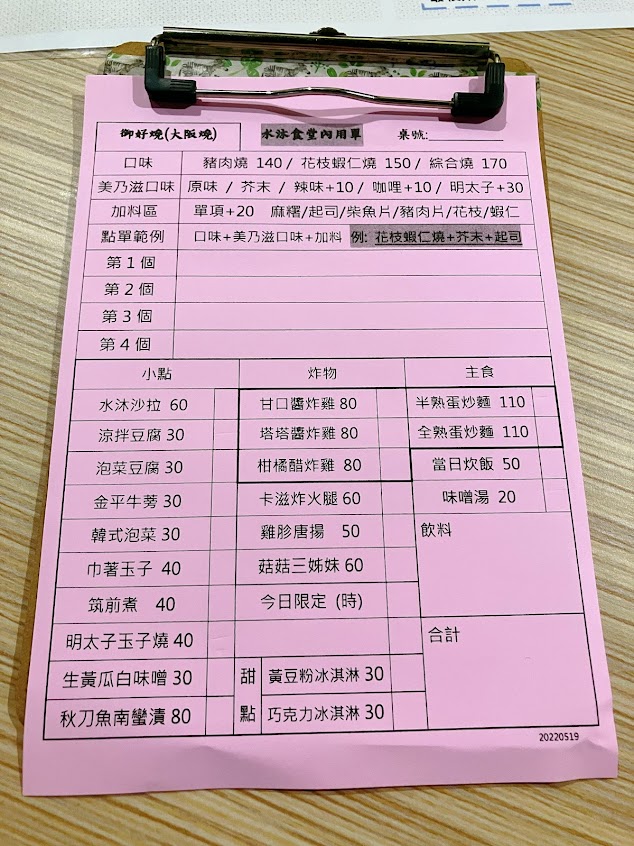 御好燒(大阪燒) 水沐食堂內用單 桌號:
口味 豬肉燒 140 / 花枝蝦仁燒 150 / 綜合燒 170
美乃滋口味 原味 / 芥末 / 辣味+10 / 咖哩+10 / 明太子+30
加料區 單項+20 麻糬/起司/柴魚片/豬肉片/花枝/蝦仁
點單範例 口味+美乃滋口味+加料 例: 花枝蝦仁燒+芥末+起司
第 1 個
第 2 個
第 3 個
第 4 個
小點 炸物 主食
水沐沙拉 60 甘口醬炸雞 80 半熟蛋炒麵 110
涼拌豆腐 30 塔塔醬炸雞 80 全熟蛋炒麵 110
泡菜豆腐 30 柑橘醋炸雞 80 當日炊飯 50
金平牛蒡 30 卡滋炸火腿 60 味噌湯 20
韓式泡菜 30 雞胗唐揚 50 飲料
巾著玉子 40 菇菇三姊妹 60
筑前煮 40 今日限定 (時)
明太子玉子燒 40 合計
生黃瓜白味噌 30 甜 黃豆粉冰淇淋 30
秋刀魚南蠻漬 80 點 巧克力冰淇淋 30
20220519